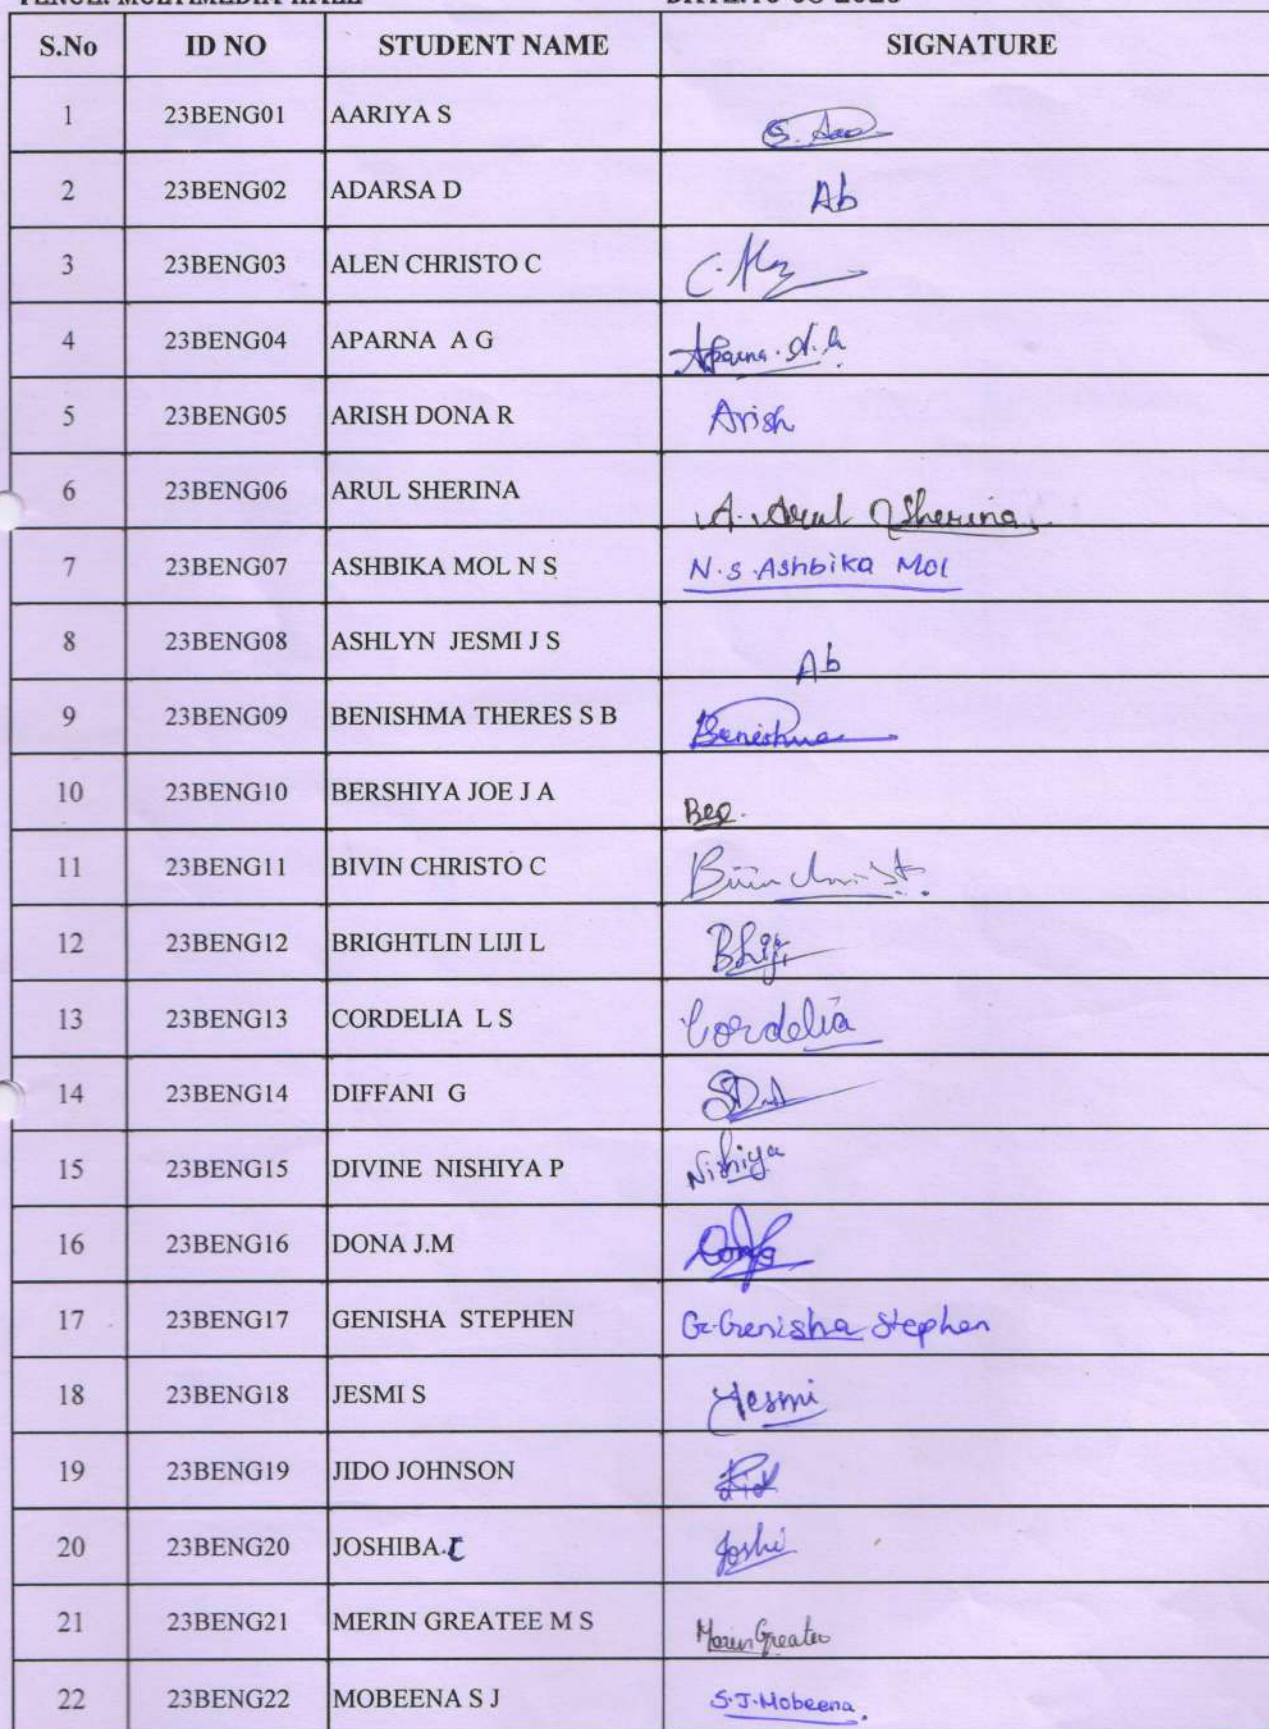 S.No ID NO STUDENT NAME SIGNATURE
1 23BENG01 AARIYA S
2 23BENG02 ADARSA D Ab
3 23BENG03 ALEN CHRISTO C
4 23BENG04 APARNA A G Aparna. A. G
5 23BENG05 ARISH DONA R Arish
6 23BENG06 ARUL SHERINA A. Arul Sherina
7 23BENG07 ASHBIKA MOL N S N.S.Ashbika Mol
8 23BENG08 ASHLYN JESMI J S Ab
9 23BENG09 BENISHMA THERES S B Benishma
10 23BENG10 BERSHIYA JOE J A
11 23BENG11 BIVIN CHRISTO C
12 23BENG12 BRIGHTLIN LIJI L
13 23BENG13 CORDELIA L S Cordelia
14 23BENG14 DIFFANI G
15 23BENG15 DIVINE NISHIYA P Nishiya
16 23BENG16 DONA J.M
17 23BENG17 GENISHA STEPHEN G.Genisha Stephen
18 23BENG18 JESMI S Jesmi
19 23BENG19 JIDO JOHNSON
20 23BENG20 JOSHIBA. Joshi
21 23BENG21 MERIN GREATEE M S Merin Greatee
22 23BENG22 MOBEENA S J S.J.Mobeena.